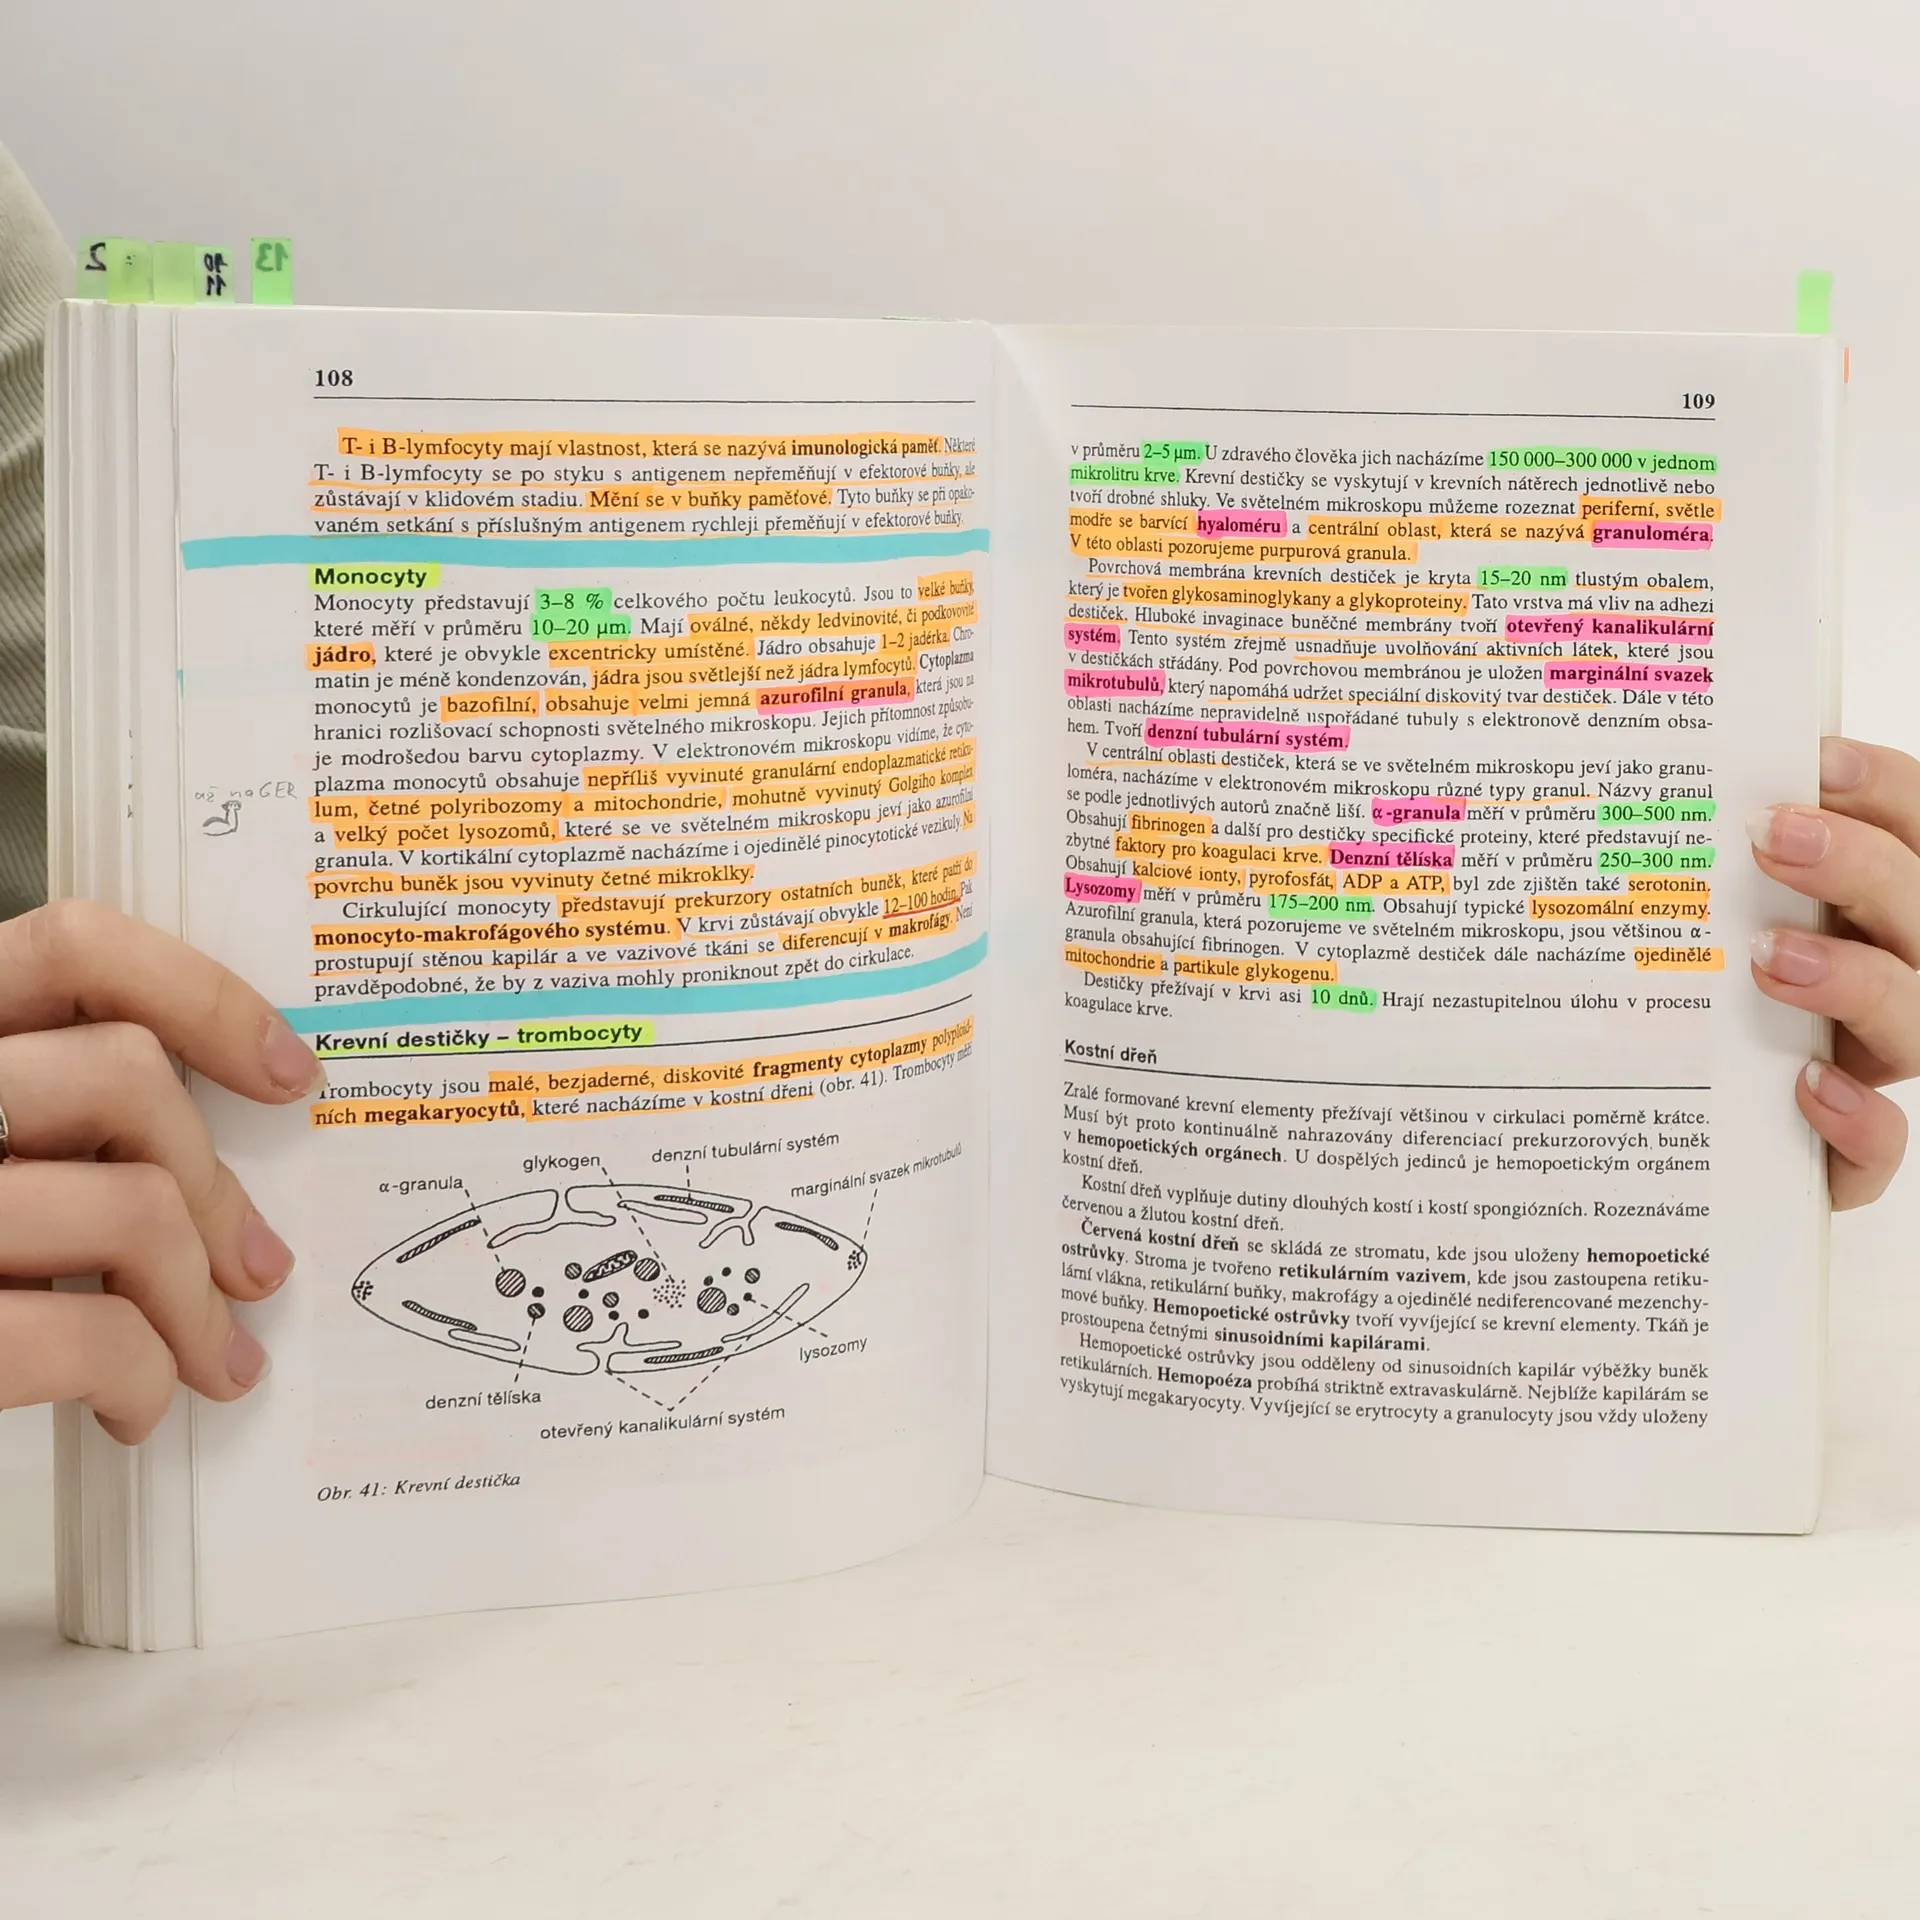 2
10
11
13
108
T- i B-lymfocyty mají vlastnost, která se nazývá imunologická paměť. Některé
T- i B-lymfocyty se po styku s antigenem nepřeměňují v efektorové buňky, ale
zůstávají v klidovém stadiu. Mění se v buňky paměťové. Tyto buňky se při opako-
vaném setkání s příslušným antigenem rychleji přeměňují v efektorové buňky.
Monocyty
Monocyty představují 3–8 % celkového počtu leukocytů. Jsou to velké buňky,
které měří v průměru 10–20 μm. Mají oválné, někdy ledvinovité, či podkovovité
jádro, které je obvykle excentricky umístěné. Jádro obsahuje 1–2 jadérka. Chro-
matin je méně kondenzován, jádra jsou světlejší než jádra lymfocytů. Cytoplazma
monocytů je bazofilní, obsahuje velmi jemná azurofilní granula, která jsou na
hranici rozlišovací schopnosti světelného mikroskopu. Jejich přítomnost způsobu-
je modrošedou barvu cytoplazmy. V elektronovém mikroskopu vidíme, že cyto-
plazma monocytů obsahuje nepříliš vyvinuté granulární endoplazmatické retiku-
lum, četné polyribozomy a mitochondrie, mohutně vyvinutý Golgiho komplex
a velký počet lysozomů, které se ve světelném mikroskopu jeví jako azurofilní
granula. V kortikální cytoplazmě nacházíme i ojedinělé pinocytotické vezikuly. Na
povrchu buněk jsou vyvinuty četné mikroklky.
Cirkulující monocyty představují prekurzory ostatních buněk, které patří do
monocyto-makrofágového systému. V krvi zůstávají obvykle 12–100 hodin. Pak
prostupují stěnou kapilár a ve vazivové tkáni se diferencují v makrofágy. Není
pravděpodobné, že by z vaziva mohly proniknout zpět do cirkulace.
až na GER
Krevní destičky – trombocyty
Trombocyty jsou malé, bezjaderné, diskovité fragmenty cytoplazmy polyploid-
ních megakaryocytů, které nacházíme v kostní dřeni (obr. 41). Trombocyty měří
α-granula
glykogen
denzní tubulární systém
marginální svazek mikrotubulů
lysozomy
denzní tělíska
otevřený kanalikulární systém
Obr. 41: Krevní destička
109
v průměru 2–5 μm. U zdravého člověka jich nacházíme 150 000–300 000 v jednom
mikrolitru krve. Krevní destičky se vyskytují v krevních nátěrech jednotlivě nebo
tvoří drobné shluky. Ve světelném mikroskopu můžeme rozeznat periferní, světle
modře se barvící hyaloméru a centrální oblast, která se nazývá granuloméra.
V této oblasti pozorujeme purpurová granula.
Povrchová membrána krevních destiček je kryta 15–20 nm tlustým obalem,
který je tvořen glykosaminoglykany a glykoproteiny. Tato vrstva má vliv na adhezi
destiček. Hluboké invaginace buněčné membrány tvoří otevřený kanalikulární
systém. Tento systém zřejmě usnadňuje uvolňování aktivních látek, které jsou
v destičkách střádány. Pod povrchovou membránou je uložen marginální svazek
mikrotubulů, který napomáhá udržet speciální diskovitý tvar destiček. Dále v této
oblasti nacházíme nepravidelně uspořádané tubuly s elektronově denzním obsa-
hem. Tvoří denzní tubulární systém.
V centrální oblasti destiček, která se ve světelném mikroskopu jeví jako granu-
loméra, nacházíme v elektronovém mikroskopu různé typy granul. Názvy granul
se podle jednotlivých autorů značně liší. α-granula měří v průměru 300–500 nm.
Obsahují fibrinogen a další pro destičky specifické proteiny, které představují ne-
zbytné faktory pro koagulaci krve. Denzní tělíska měří v průměru 250–300 nm.
Obsahují kalciové ionty, pyrofosfát, ADP a ATP, byl zde zjištěn také serotonin.
Lysozomy měří v průměru 175–200 nm. Obsahují typické lysozomální enzymy.
Azurofilní granula, která pozorujeme ve světelném mikroskopu, jsou většinou α-
granula obsahující fibrinogen. V cytoplazmě destiček dále nacházíme ojedinělé
mitochondrie a partikule glykogenu.
Destičky přežívají v krvi asi 10 dnů. Hrají nezastupitelnou úlohu v procesu
koagulace krve.
Kostní dřeň
Zralé formované krevní elementy přežívají většinou v cirkulaci poměrně krátce.
Musí být proto kontinuálně nahrazovány diferenciací prekurzorových buněk
v hemopoetických orgánech. U dospělých jedinců je hemopoetickým orgánem
kostní dřeň.
Kostní dřeň vyplňuje dutiny dlouhých kostí i kostí spongiózních. Rozeznáváme
červenou a žlutou kostní dřeň.
Červená kostní dřeň se skládá ze stromatu, kde jsou uloženy hemopoetické
ostrůvky. Stroma je tvořeno retikulárním vazivem, kde jsou zastoupena retiku-
lární vlákna, retikulární buňky, makrofágy a ojedinělé nediferencované mezenchy-
mové buňky. Hemopoetické ostrůvky tvoří vyvíjející se krevní elementy. Tkáň je
prostoupena četnými sinusoidními kapilárami.
Hemopoetické ostrůvky jsou odděleny od sinusoidních kapilár výběžky buněk
retikulárních. Hemopoéza probíhá striktně extravaskulárně. Nejblíže kapilárám se
vyskytují megakaryocyty. Vyvíjející se erytrocyty a granulocyty jsou vždy uloženy